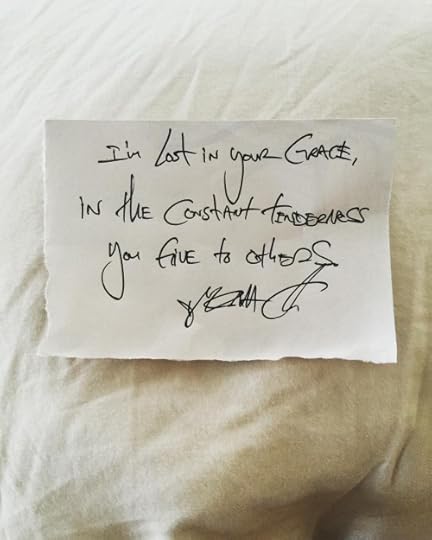 I'm Lost in your GRACE,
in the constant tenderness
you give to others